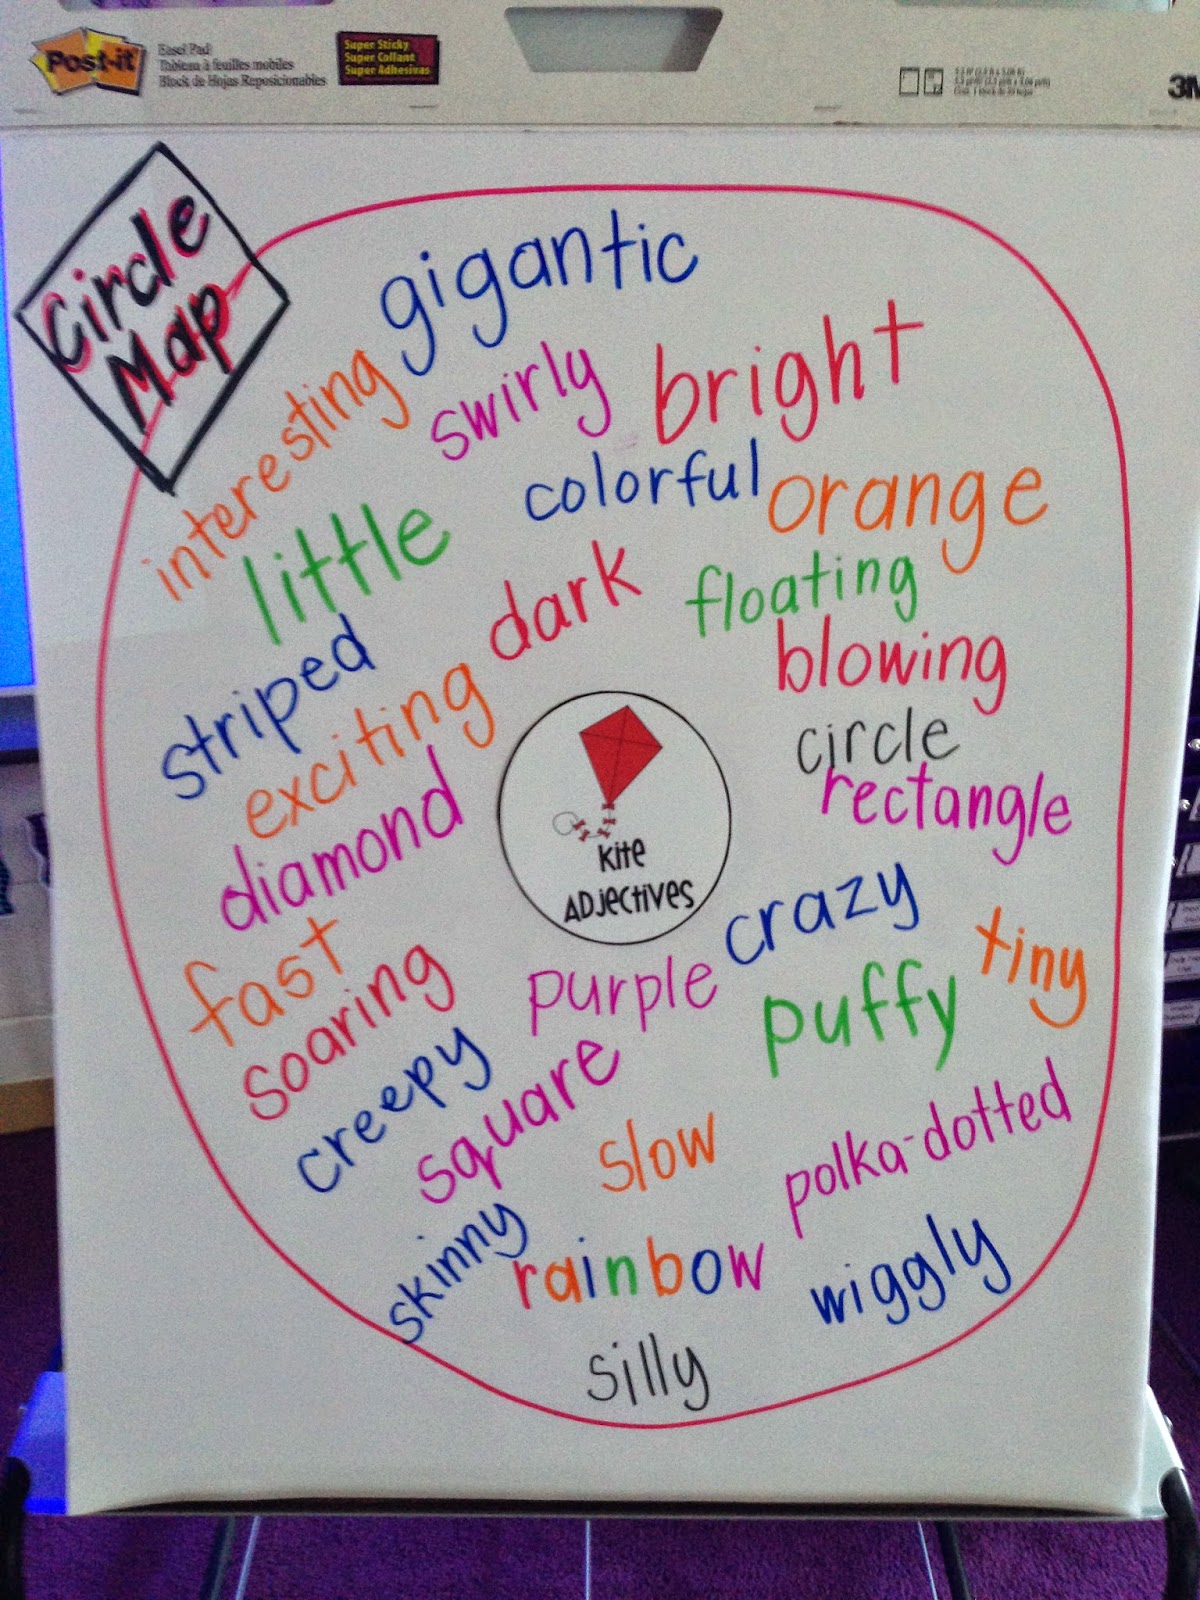 Post-it
Easel Pad
Tableau à feuilles mobiles
Block de Hojas Reposicionables
Super Sticky
Super Collant
Super Adhesivas
3M
Circle
Map
gigantic
interesting
swirly
bright
colorful
orange
little
dark
floating
striped
blowing
exciting
circle
rectangle
diamond
Kite
Adjectives
crazy
fast
tiny
soaring
purple
puffy
creepy
square
slow
polka-dotted
skinny
rainbow
wiggly
silly